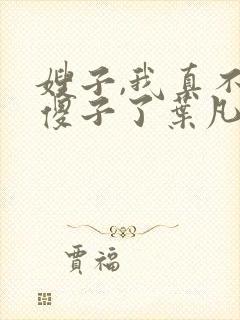 嫂子,我真不
傻子了葉凡
賈福